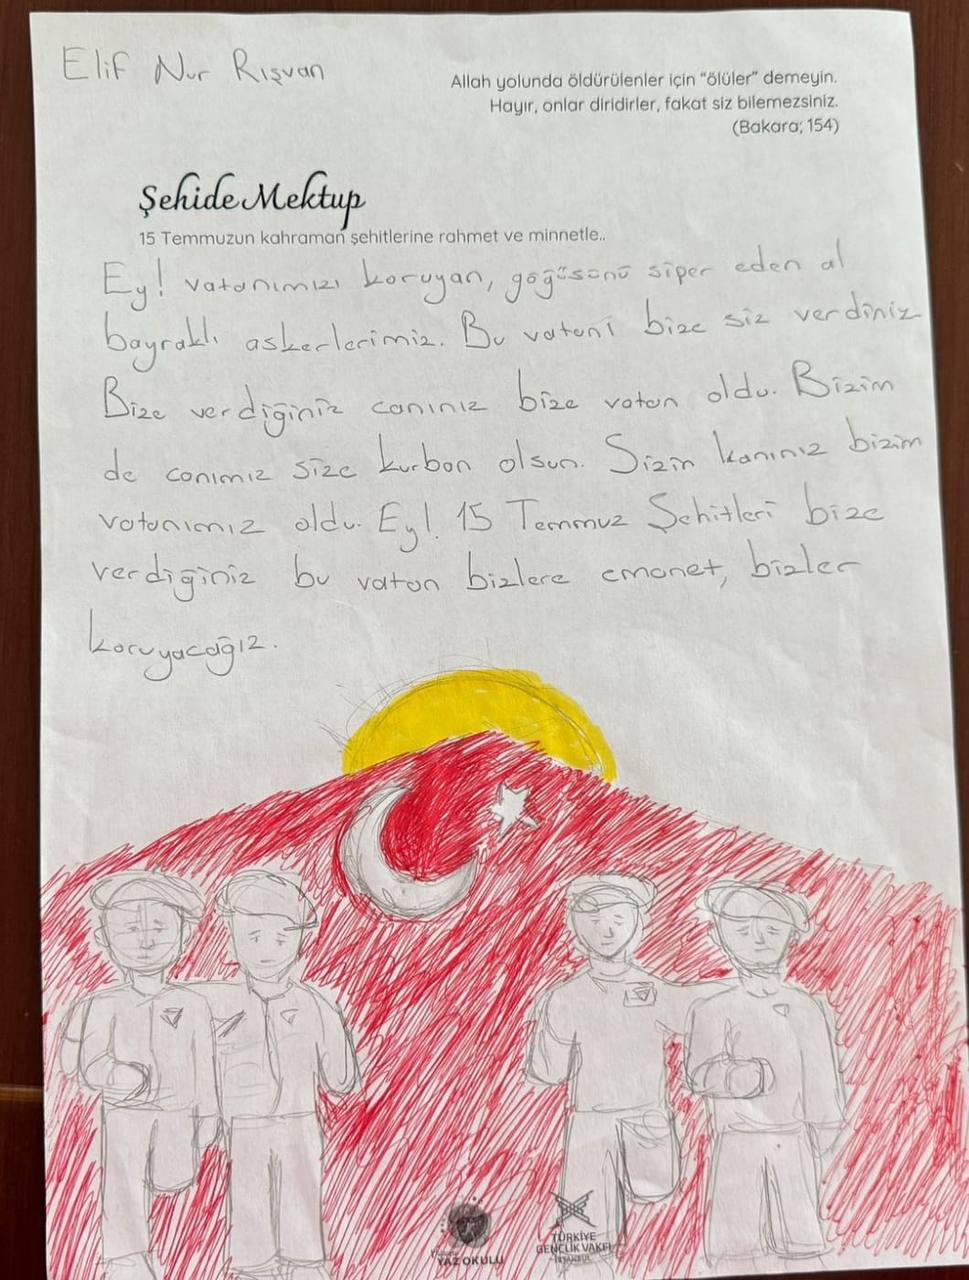 Elif Nur Rışvan
Allah yolunda öldürülenler için "ölüler" demeyin.
Hayır, onlar diridirler, fakat siz bilemezsiniz.
(Bakara; 154)
Şehide Mektup
15 Temmuzun kahraman şehitlerine rahmet ve minnetle..
Ey! vatanımızı koruyan, göğüsünü siper eden al
bayraklı askerlerimiz. Bu vatani bize siz verdiniz
Bize verdiğiniz canınız bize vatan oldu. Bizim
de canımız size kurban olsun. Sizin kanınız bizim
vatanımız oldu. Ey! 15 Temmuz Şehitleri bize
verdiğiniz bu vatan bizlere emanet, bizler
koruyacağız.
YAZ OKULU
TÜRKİYE
GENÇLİK VAKFI
İSTANBUL